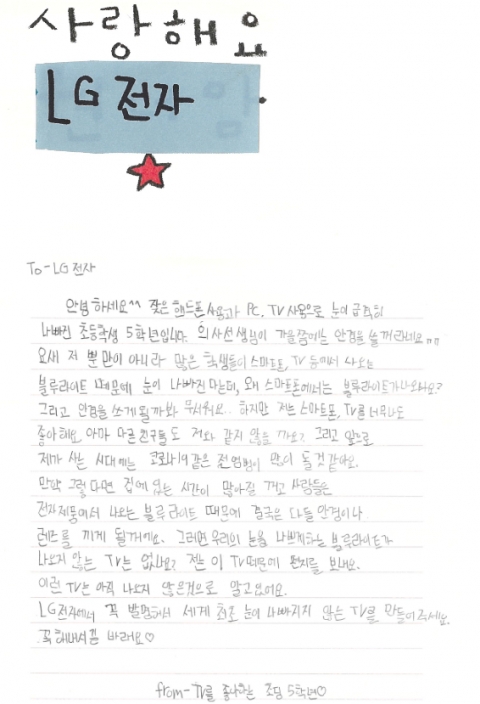 사랑해요
LG 전자
To- LG 전자
안녕하세요^^ 잦은 핸드폰 사용과 PC, TV 사용으로 눈이 급격히
나빠진 초등학생 5학년입니다. 의사선생님이 가을쯤에는 안경을 쓸꺼라네요ㅠㅠ
요새 저 뿐만이 아니라 많은 학생들이 스마트폰, TV 등에서 나오는
블루라이트 때문에 눈이 나빠진다는데, 왜 스마트폰에서는 블루라이트가 나오나요?
그리고 안경을 쓰게 될까봐 무서워요.. 하지만 저는 스마트폰, TV를 너무나도
좋아해요. 아마 다른 친구들도 저와 같지 않을까요? 그리고 앞으로
제가 사는 시대에는 코로나19 같은 전염병이 많이 돌 것 같아요.
만약 그렇다면 집에 있는 시간이 많아질 꺼고 사람들은
전자제품에서 나오는 블루라이트 때문에 결국은 다들 안경이나
렌즈를 끼게 될거에요. 그러면 우리의 눈을 나쁘게하는 블루라이트가
나오지 않는 TV는 없나요? 저는 이 TV때문에 편지를 보내요.
이런 TV는 아직 나오지 않은것으로 알고있어요.
LG전자에서 꼭 발명해서 세계 최초 눈이 나빠지지 않는 TV를 만들어주세요.
꼭 해내시길 바래요♡
from-TV를 좋아하는 초딩 5학년♡